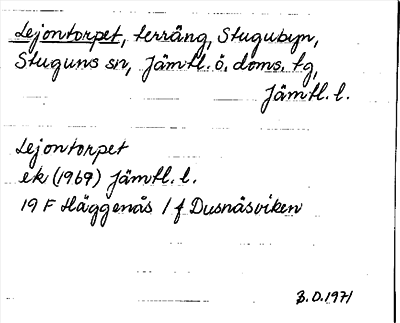 Lejontorpet, terräng, Stugubyn,
Stuguns sn, Jämtl. ö. doms. tg,
Jämtl. l.
Lejontorpet
ek (1969) Jämtl. l.
19 F Häggenås / f Dusnåsviken
B.O. 1971